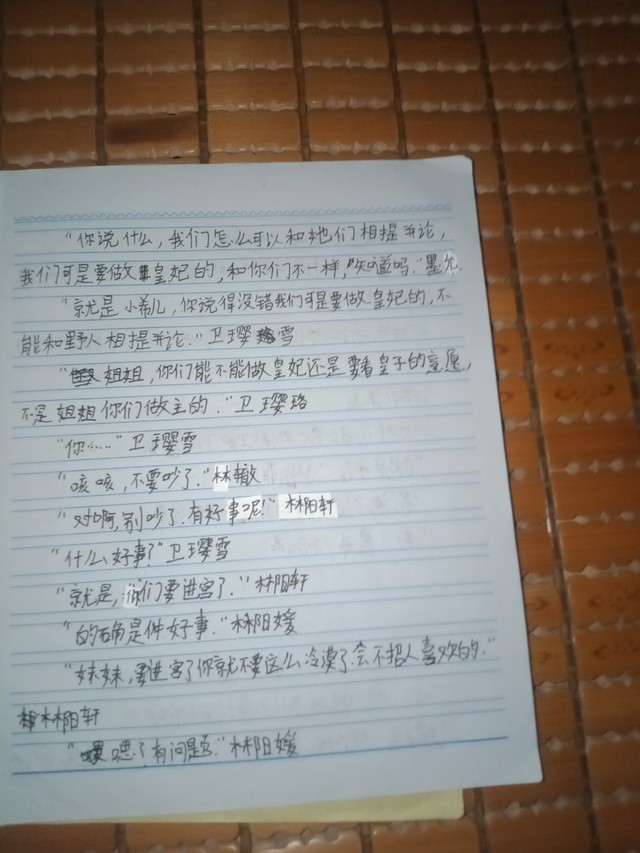 “你说什么，我们怎么可以和她们相提并论，
我们可是要做皇妃的，和你们不一样，知道吗。”墨允
“就是小希儿，你说得没错我们可是要做皇妃的，不
能和野人相提并论。”卫璎雪
“姐姐，你们能不能做皇妃还是要看皇子的意愿，
不是姐姐你们做主的。”卫璎珞
“你……”卫璎雪
“咳咳，不要吵了。”林辙
“对啊，别吵了。有好事呢！”林阳轩
“什么好事？”卫璎雪
“就是，你们要进宫了。”林阳轩
“的确是件好事。”林阳媛
“妹妹，要进宫了你就不要这么冷漠了。会不招人喜欢的。”
林阳轩
“嗯？有问题？”林阳媛